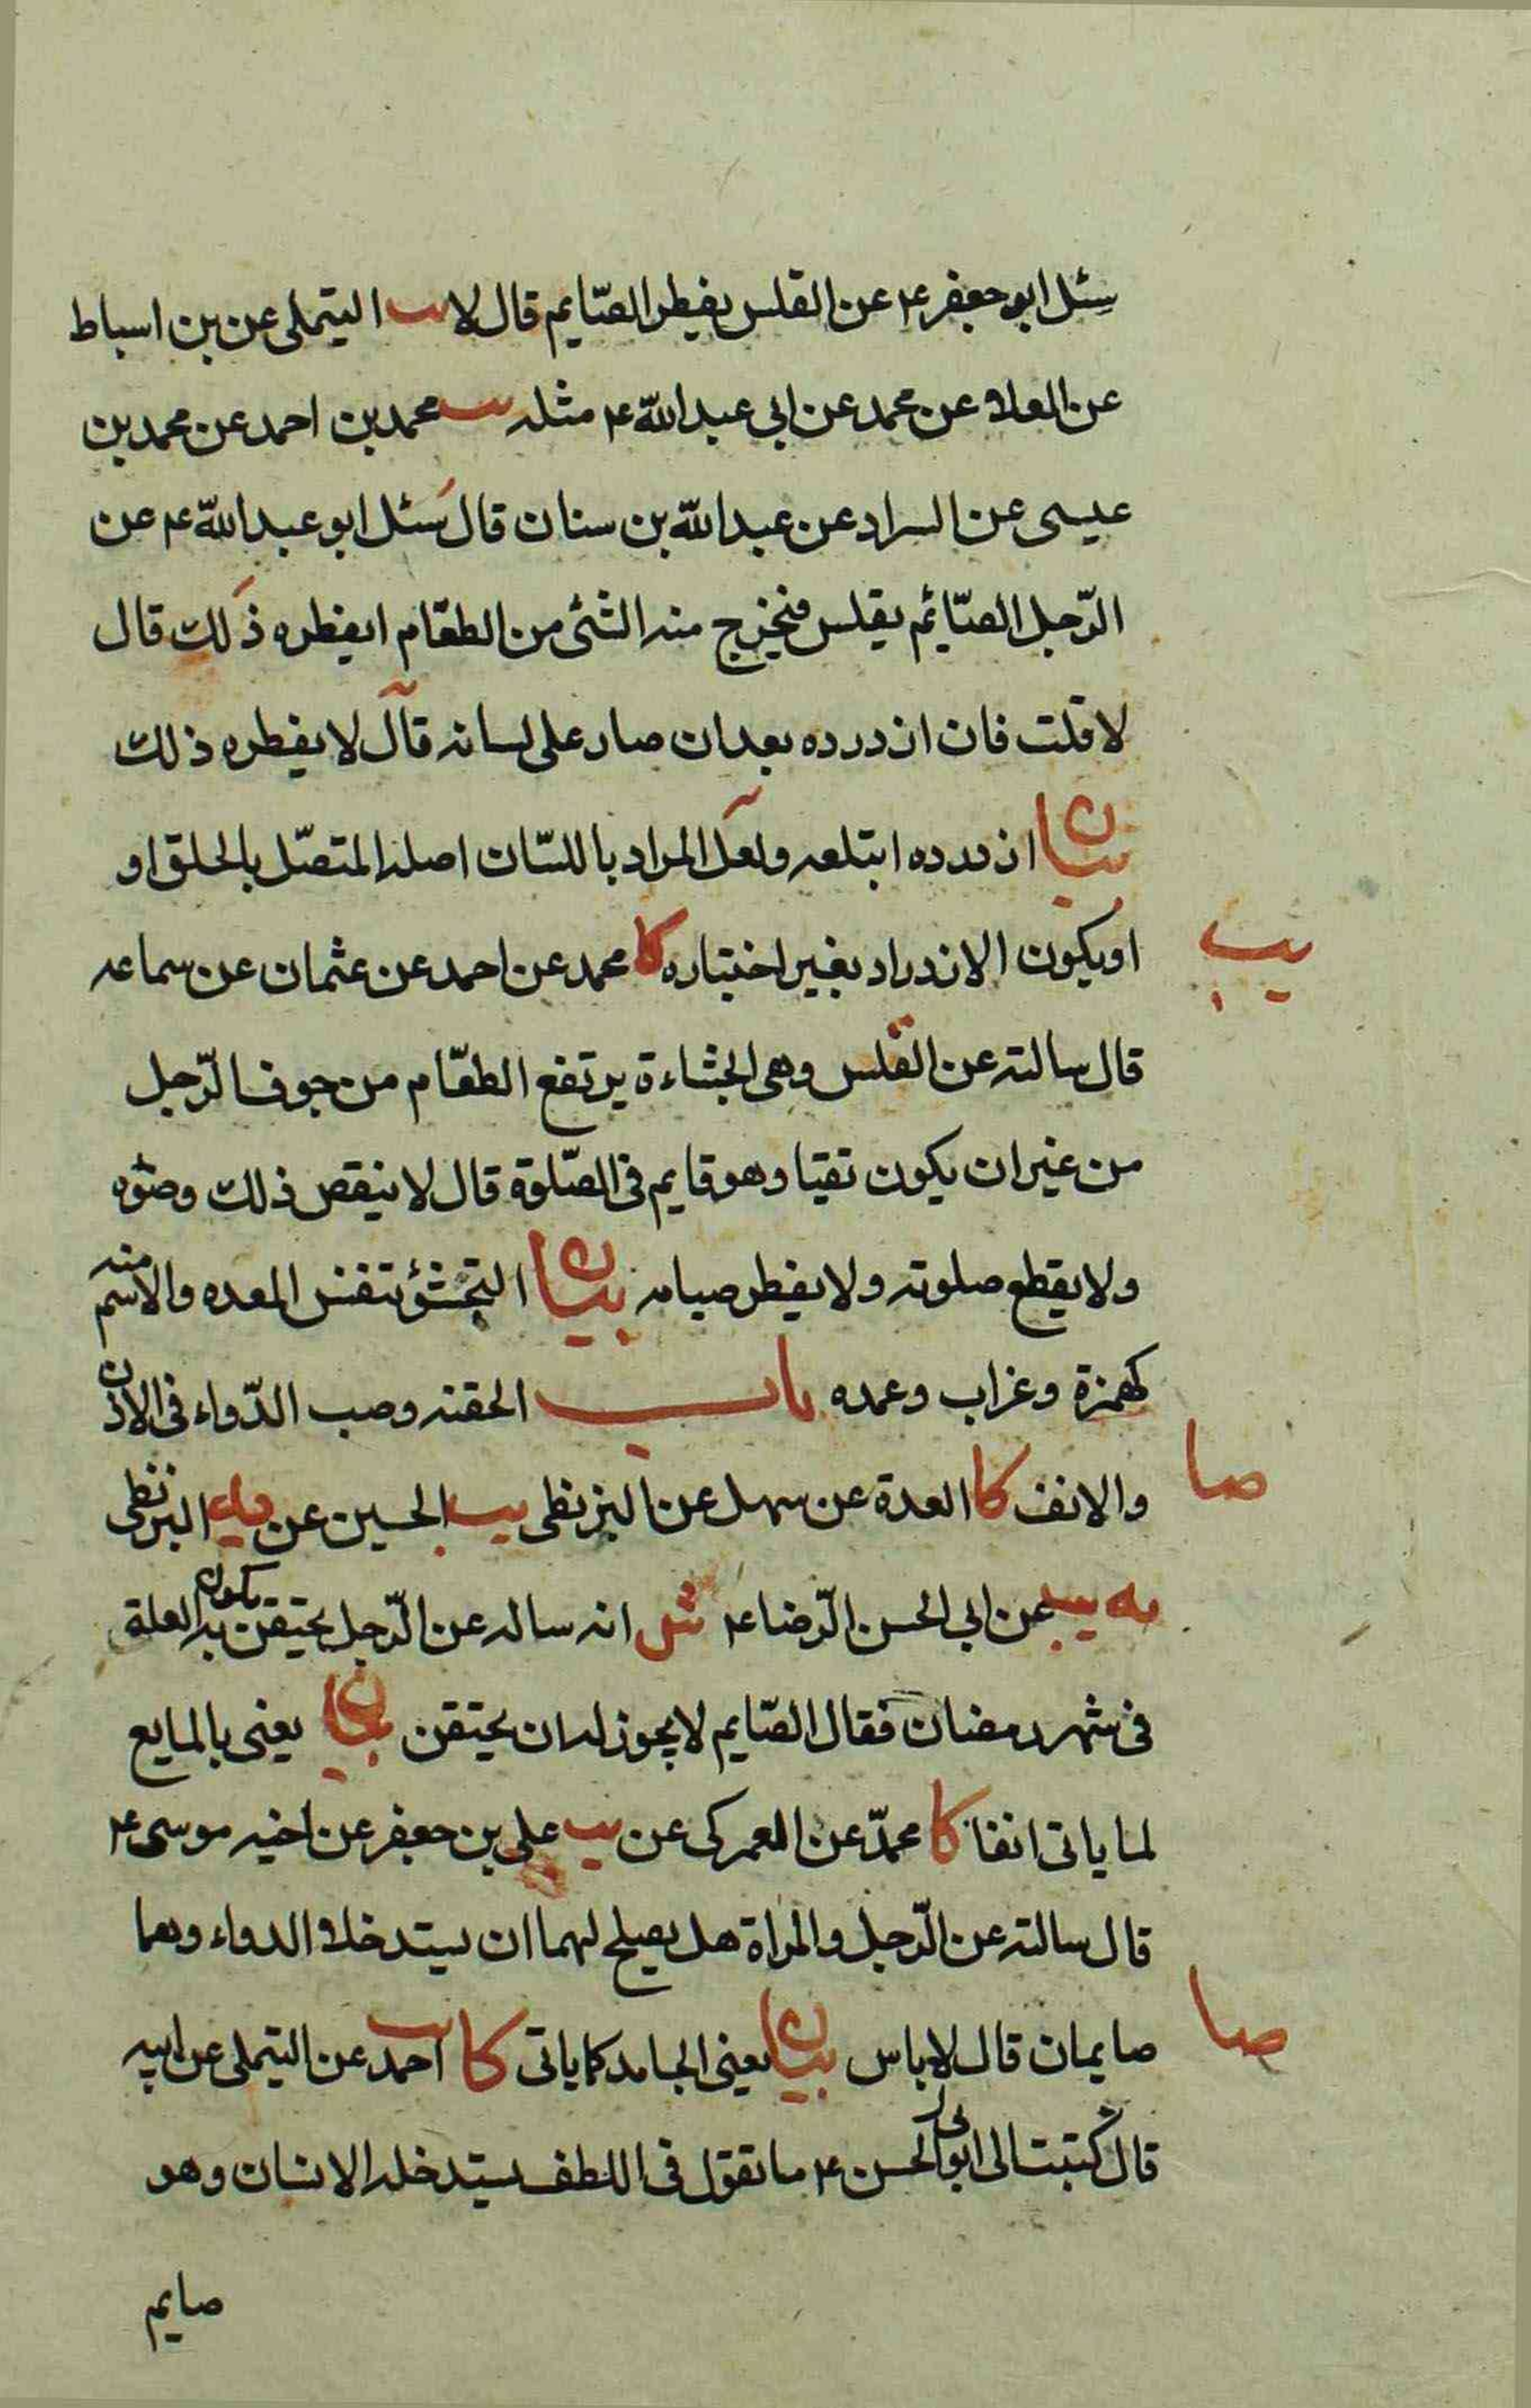 سئل ابو جعفر ع عن القلس يفطر الصّايم قال لا يب التيملى عن بن اسباط
عن العلاء عن محمد عن ابى عبد اللّه ع مثله يب محمد بن احمد عن محمد بن
عيسى عن السراد عن عبد اللّه بن سنان قال سَئل ابو عبد اللّه ع عن
الرّجل الصّائم يقلس فيخرج منه الشئ من الطعّام ايفطره ذلك قال
لا قلت فان ازدرده بعد ان صار على لسانه قال لا يفطره ذلك
بيان ازدرده ابتلعه ولعل المراد باللسّان اصله المتصّل بالحلق او
يب
او يكون الازدراد بغير اختياره كا محمد عن احمد عن عثمان عن سماعه
قال سالته عن القلس وهى الجشاءة يرتفع الطعّام من جوف الرّجل
من غير ان يكون تقيا وهو قايم فى الصّلوة قال لا ينقض ذلك وضؤه
ولا يقطع صلوته ولا يفطر صيامه بيان التجشؤ تنفس المعده والاسم منه
كهمزة وغراب وعمده باب الحقنه وصب الدّواء فى الاذن
صا
والانف كا العدة عن سهل عن البزنطى يب الحسين عن يه البزنطى
يه يب عن ابى الحسن الرّضا ع ش انه ساله عن الرّجل يحتقن يكون به العلة
فى شهر رمضان فقال الصّايم لا يجوز له ان يحتقن بيان يعنى بالمايع
لما ياتى انفا كا محمّد عن العمركى عن يب على بن جعفر عن اخيه موسى ع
قال سالته عن الرّجل والمراة هل يصلح لهما ان يستدخلا الدواء وهما
صا
صايمان قال لا باس بيان يعنى الجامد كما ياتى كا يب احمد عن التيملى عن ابيه
قال كتبت الى ابى الحسن ع ما تقول فى اللطف يستدخله الانسان وهو
صايم